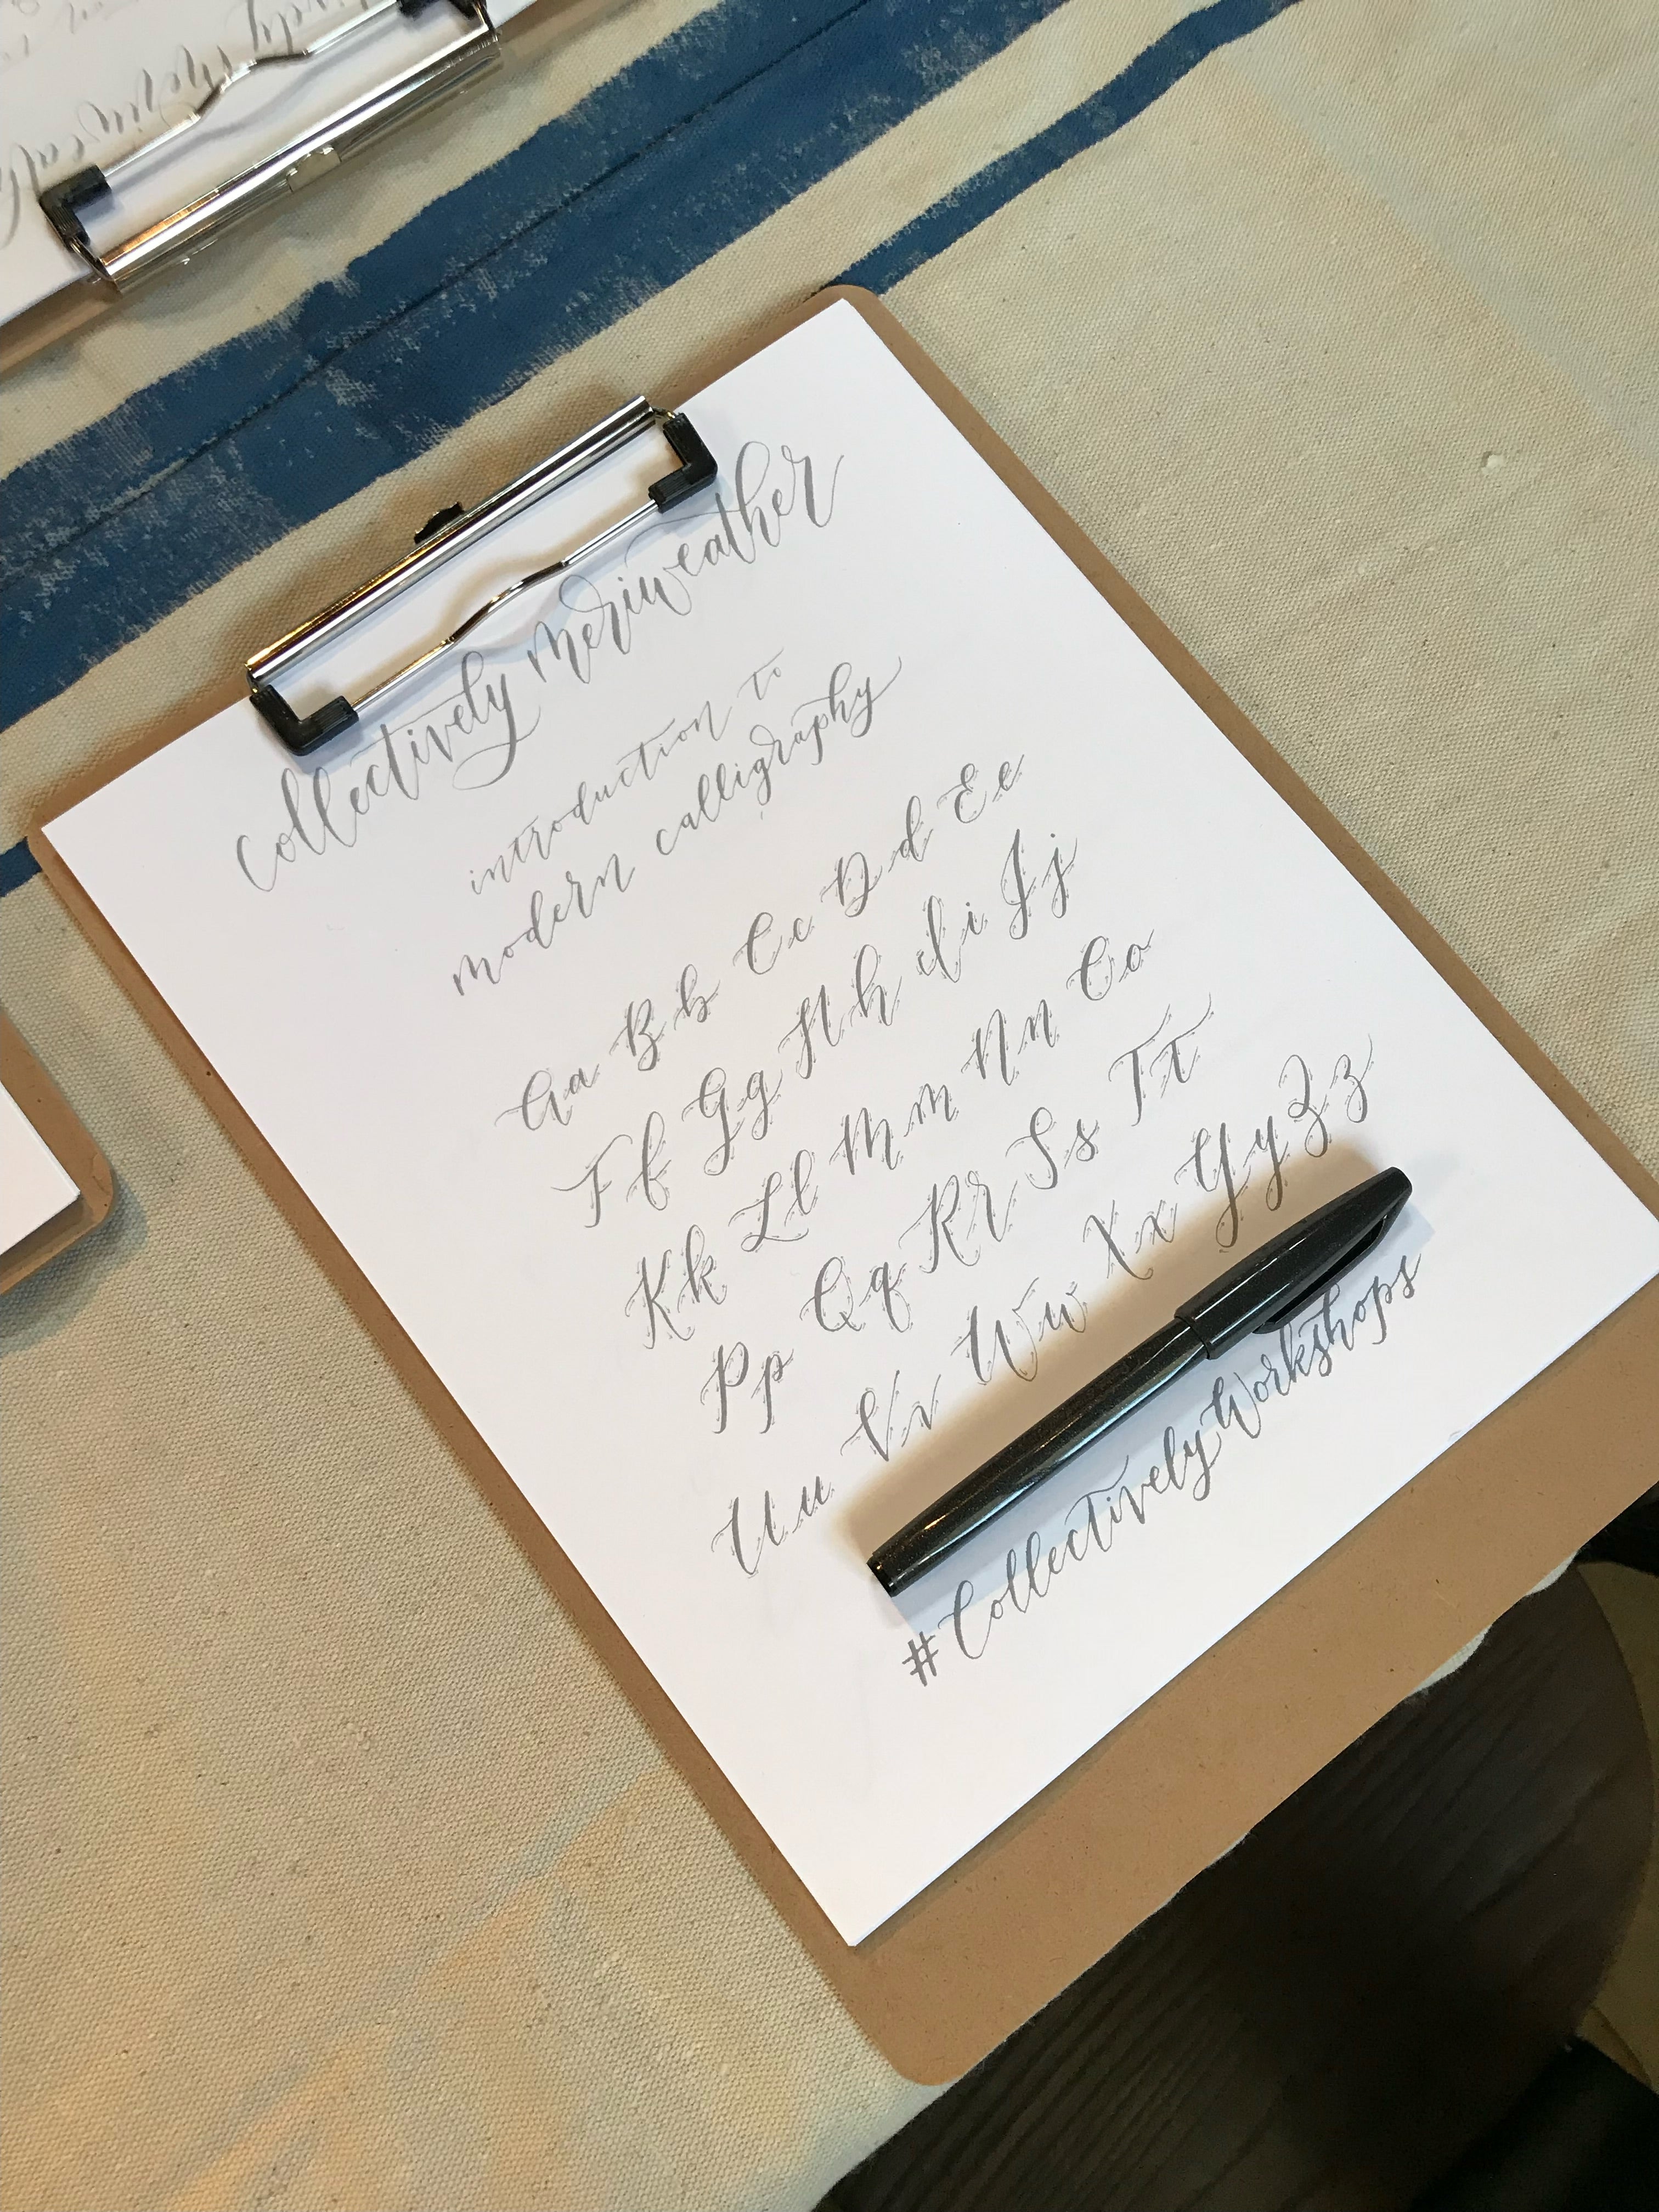 collectively meriweather
introduction to
modern calligraphy
Aa Bb Cc Dd Ee
Ff Gg Hh Ii Jj
Kk Ll Mm Nn Oo
Pp Qq Rr Ss Tt
Uu Vv Ww Xx Yy Zz
#CollectivelyWorkshops